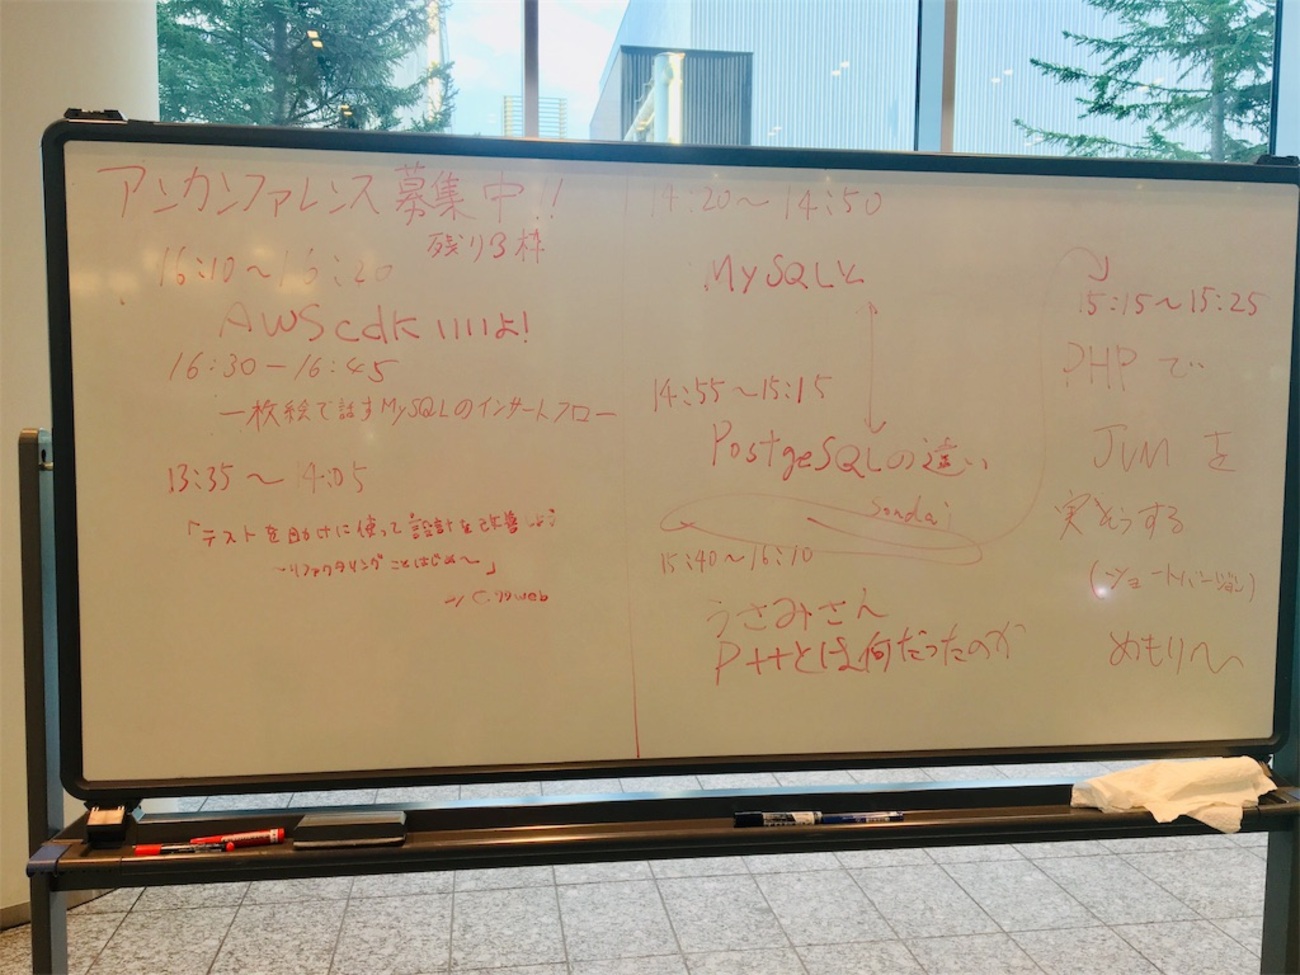 アンカンファレンス募集中!!
残り3枠
16:10〜16:20
AWS cdk いいよ!
16:30-16:45
一枚絵で話すMySQLのインサートフロー
13:35〜14:05
「テストを助けに使って設計を改善しよう
〜リファクタリングことはじめ〜」
14:20〜14:50
MySQLと
14:55〜15:15
PostgeSQLの違い
Sonda
15:40〜16:10
うさみさん
P++とは何だったのか
15:15〜15:25
PHPで
JVMを
実そうする
(ショートバージョン)
めもりー